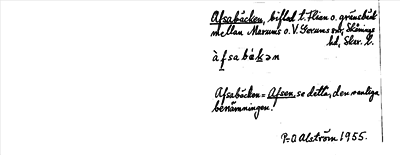 Afsabäcken, biflod t. Flian o. gränsbäck
mellan Marums o. V. Gerums snr, Skånings
hd, Skar. l.
àfsabäkən
Afsabäcken = Afsen, se detta, den vanliga
benämningen.
P-O Alström 1955.